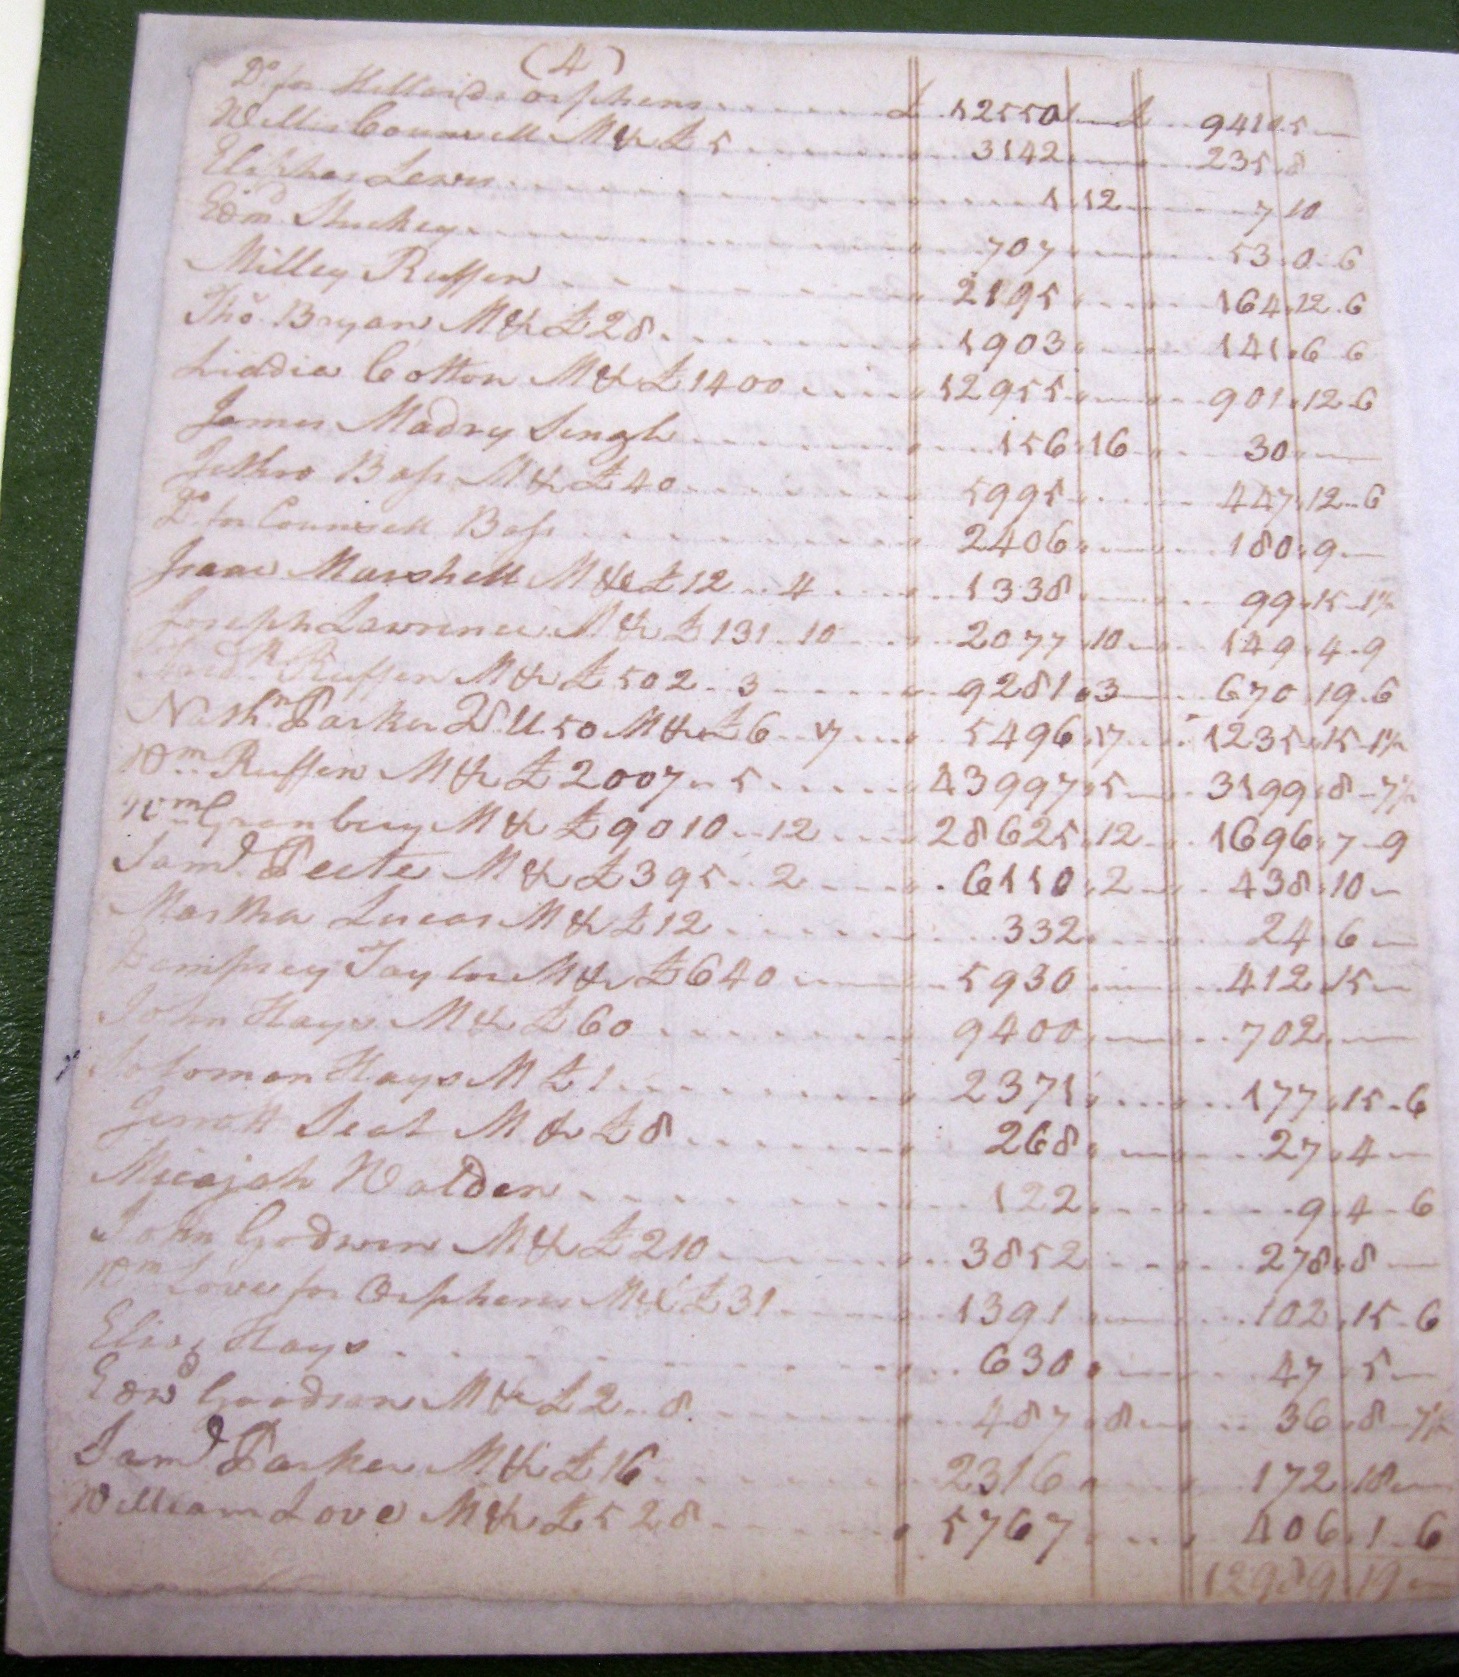 (4)
Do for Hilliard's orphens £ 12550 £ 941 5
Willis Councell M & £ 5 3142 235 8
Elisha Lewis 1 12 7 10
Edmd Stuckey 707 53 0 6
Milley Ruffen 2195 164 12 6
Tho Bryan M & £ 28 1903 141 6 6
Liddia Cotton M & £ 1400 12955 901 12 6
James Madry Singl 156 16 30
Jethro Bass M & £ 40 5995 447 12 6
Do for Councell Bass 2406 180 9
Isaac Marshell M & £ 12 4 1338 99 15 1½
Joseph Lawrence M & £ 131 10 2077 10 149 4 9
Ruffen M & £ 502 3 9281 3 670 19 6
Nathn Parker 50 M & £ 6 17 5496 17 1235 15 1½
Wm Ruffen M & £ 2007 5 43997 5 3199 8 7½
Wm Granbery M & £ 9010 12 28625 12 1696 7 9
Saml Peete M & £ 395 2 6110 2 438 10
Martha Lucas M & £ 12 332 24 6
Dempsey Taylor M & £ 640 5930 412 15
John Hays M & £ 60 9400 702
Solomon Hays M £ 1 2371 177 15 6
Jerrott Seat M & £ 8 268 27 4
Micajah Walden 122 9 4 6
John Godwin M & £ 210 3852 278 8
Wm Love for Orphens M & £ 31 1391 102 15 6
Eliz Hays 630 47 5
Edwd Goodson M & £ 2 8 487 8 36 8 7½
Saml Parker M & £ 16 2316 172 18
William Love M & £ 528 5767 406 1 6
12989 19